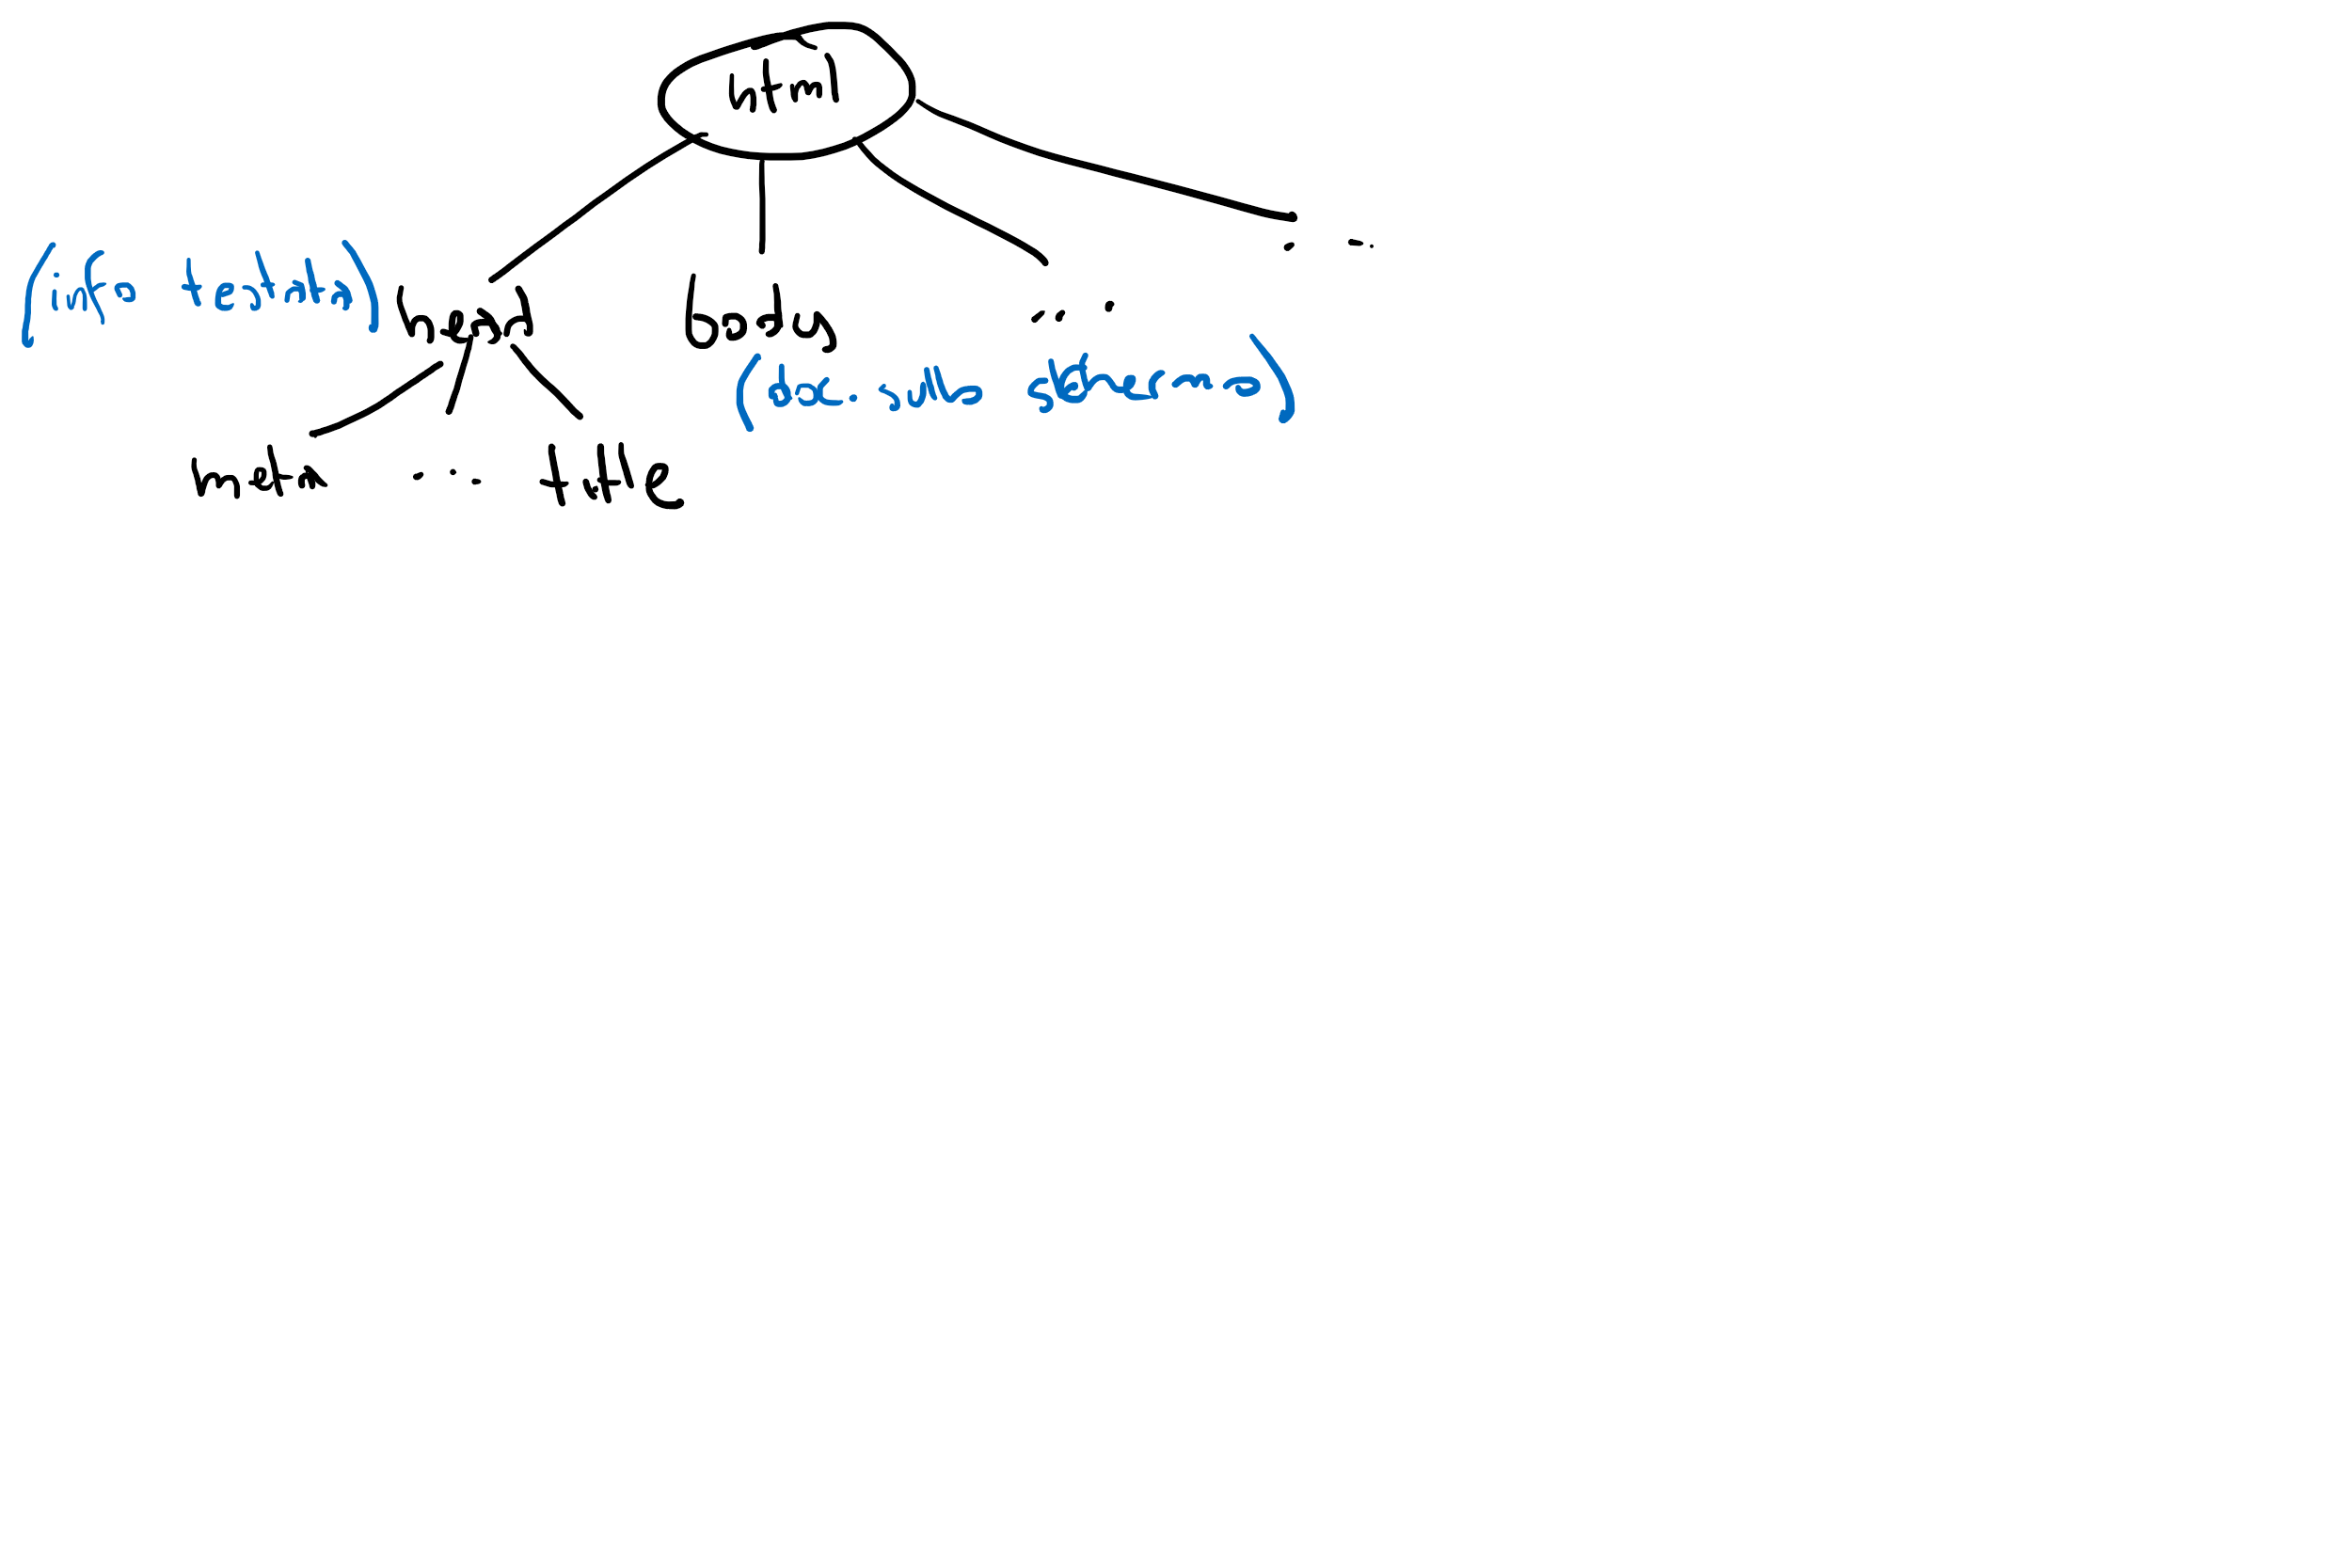 html
(info testata) head body ... ...
(doc. sullo schermo)
meta ... title